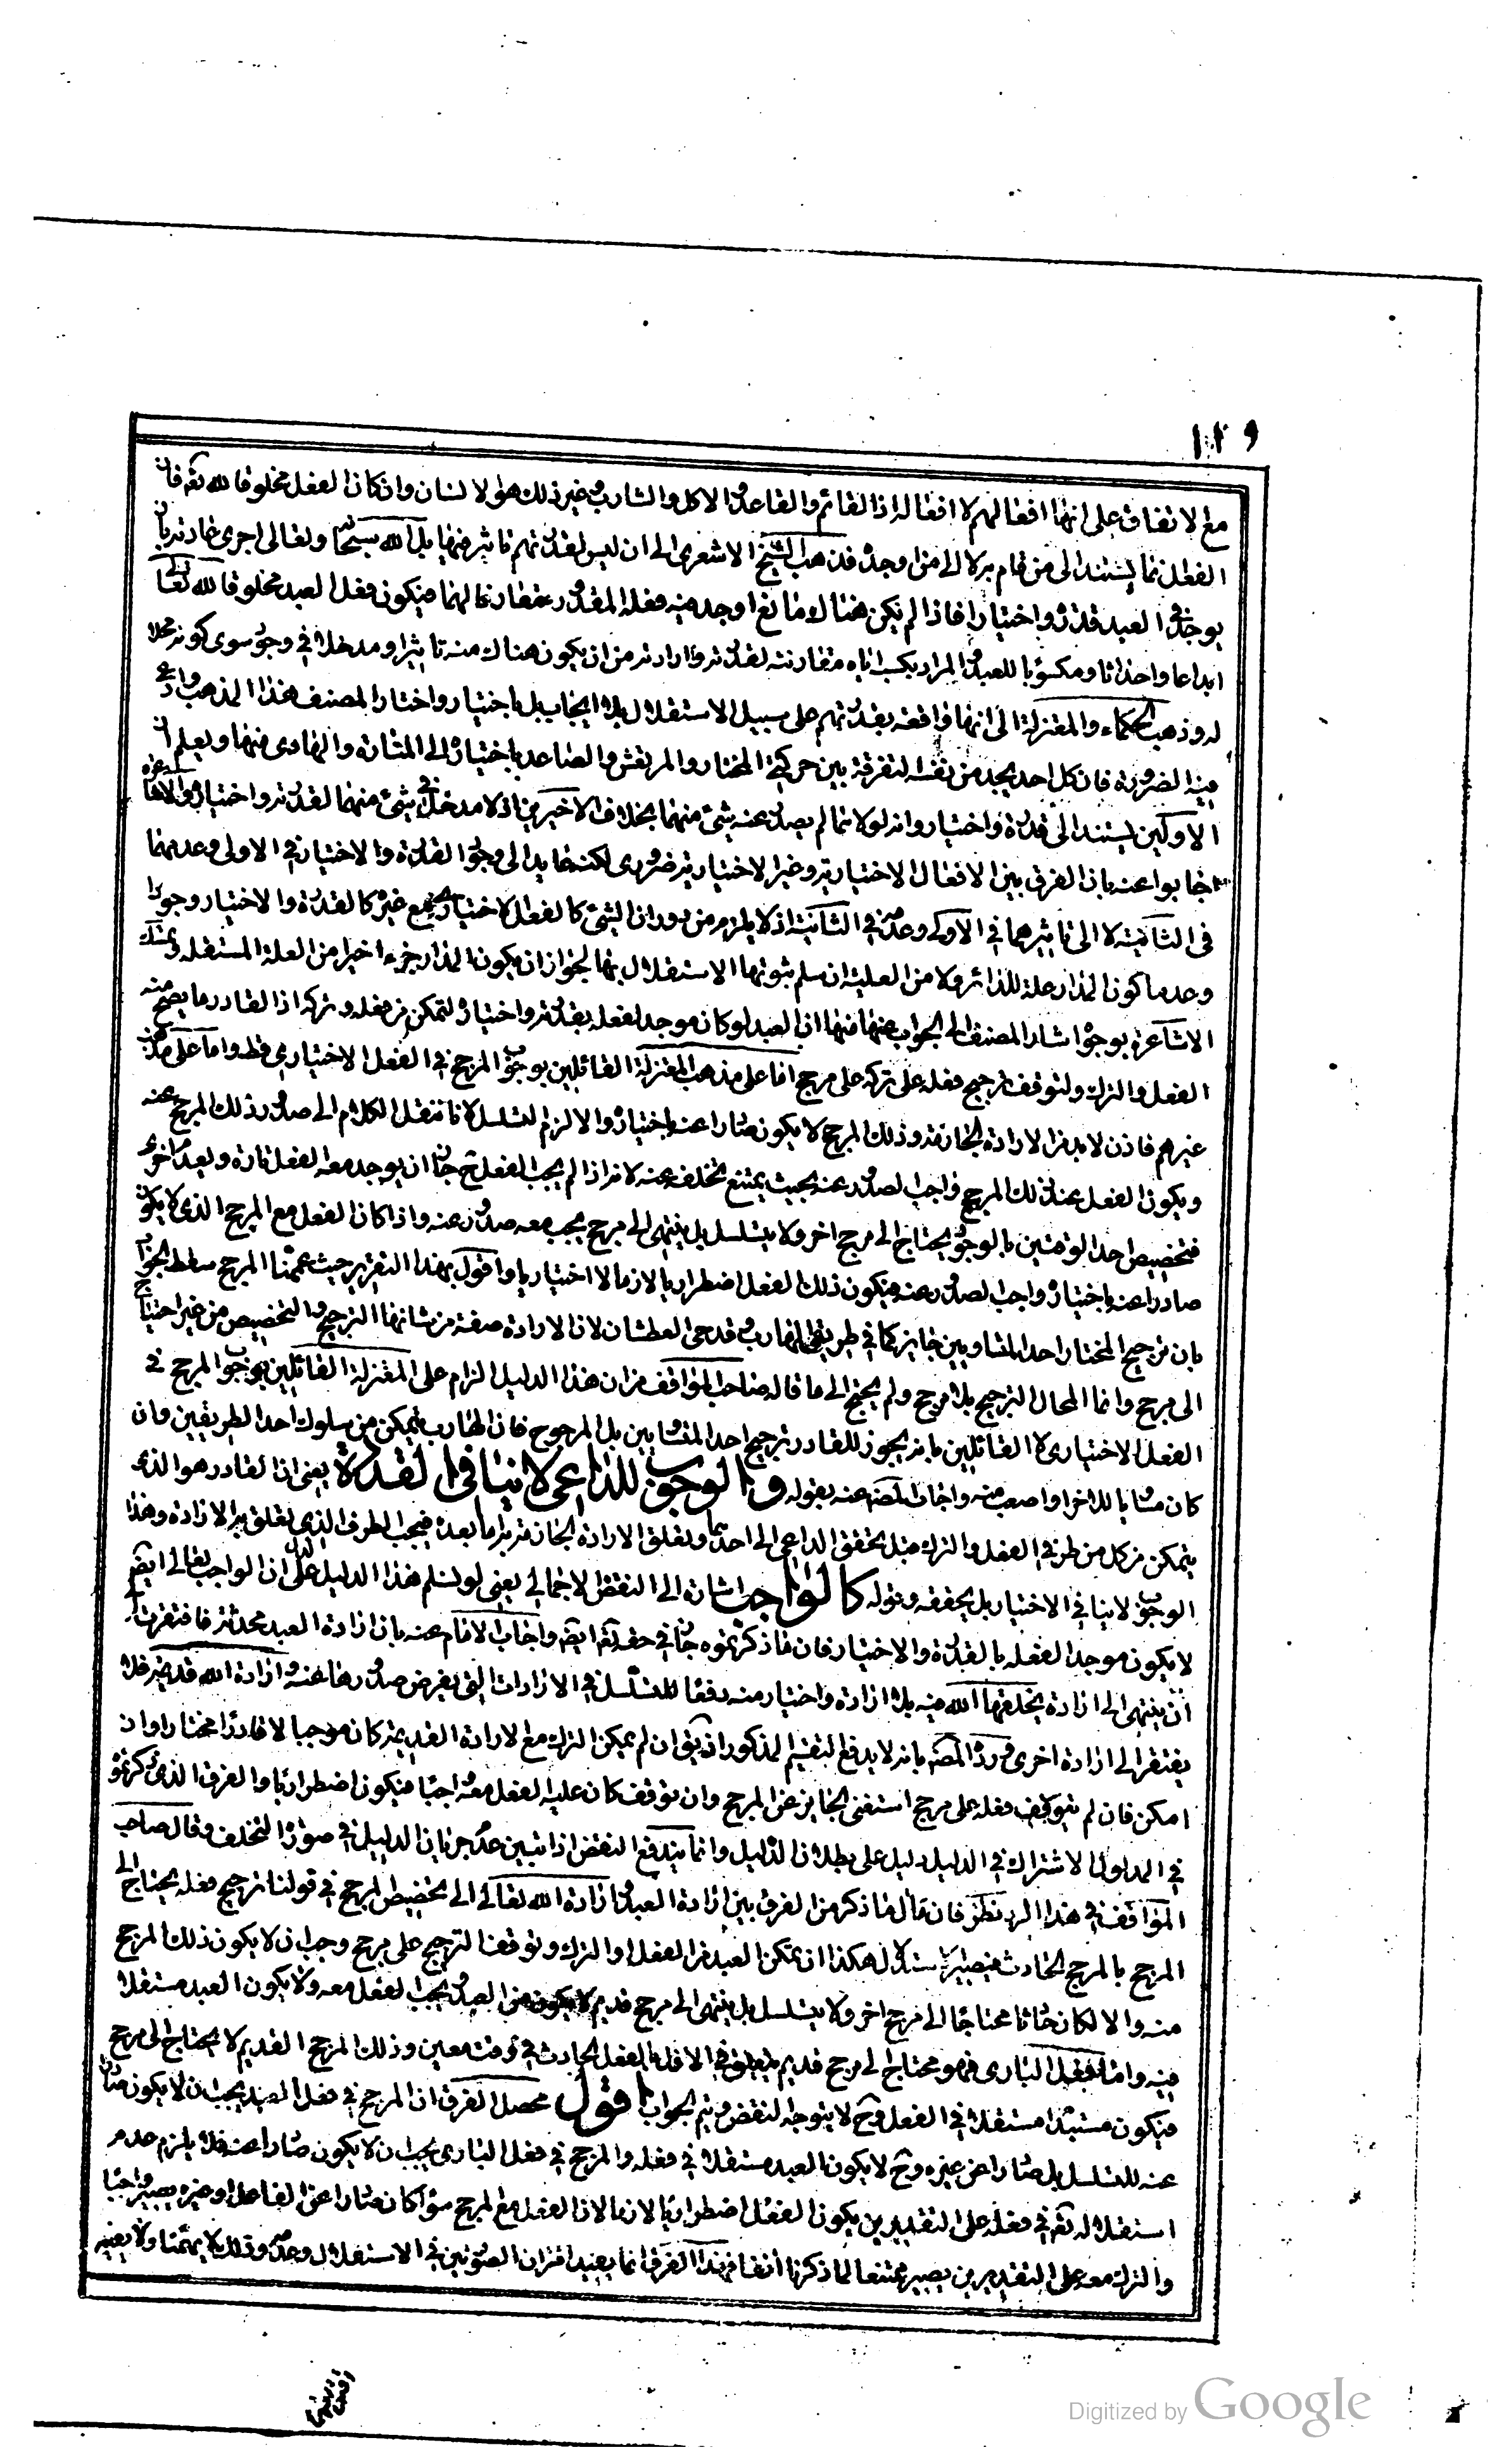 مع الاتفاق على انها افعالهم لا افعاله اذ القائم والقاعد والاكل والشارب وغير ذلك هو الانسان وان كان الفعل مخلوقا لله تعم فان
الفعل انما يستند الى من قام به لا الى من اوجده فذهب الشيخ الاشعرى الى ان ليس لقدرتهم تاثير فيها بل الله سبحانه وتعالى اجرى عادته بان
يوجد فى العبد قدرة واختيارا فاذا لم يكن هناك مانع اوجد فيه فعله المقدور مقارنا لهما فيكون فعل العبد مخلوقا لله تعالى
ابداعا واحداثا ومكسوبا للعبد والمراد بكسبه اياه مقارنته لقدرته وارادته من ان يكون هناك منه تاثير او مدخل فى وجوده سوى كونه محلا
له وذهب الحكماء والمعتزلة الى انها واقعة بقدرتهم على سبيل الاستقلال بلا ايجاب بل باختيار واختار المصنف هذا المذهب وادعى
فيه الضرورة فان كل احد يجد من نفسه التفرقة بين حركتى المختار والمرتعش والصاعد باختياره الى المنارة والهاوى منها ويعلم ان
الاوليين يستند الى قدرته واختياره وانه لولاهما لم يصدر عنه شئ منهما بخلاف الاخيرين اذ لا مدخل فى شئ منهما لقدرته واختياره والاشاعرة
اجابوا عنه بان الفرق بين الافعال الاختيارية وغير الاختيارية ضرورى لكنه عايد الى وجود القدرة والاختيار فى الاولى وعدمهما
فى الثانية لا الى تاثيرهما فى الاولى وعدمه فى الثانية اذ لا يلزم من دوران الشئ كالفعل الاختيارى مع غيره كالقدرة والاختيار وجودا
وعدما كون المدار علة للدائر ولا من العلية ان سلم ثبوتها الاستقلال بها لجواز ان يكون المدار جزء اخيرا من العلة المستقلة وتمسك
الاشاعرة بوجوه اشار المصنف الى الجواب عنها منها ان العبد لو كان موجدا لفعله بقدرته واختياره لتمكن من فعله وتركه اذ القادر ما يصح منه
الفعل والترك ولتوقف ترجيح فعله على تركه على مرجح اما على مذهب المعتزلة القائلين بوجوب المرجح فى الفعل الاختيارى فظ واما على مذهب
غيرهم فاذن لا بد من الارادة الجازمة وذلك المرجح لا يكون صادرا عنه باختياره والا لزم التسلسل لانا ننقل الكلام الى صدور ذلك المرجح عنه
ويكون الفعل عند ذلك المرجح واجب الصدور عنه بحيث يمتنع تخلفه عنه لانه اذا لم يجب الفعل ح جاز ان يوجد معه الفعل تارة ويعدم اخرى
فتخصيص احد الوقتين بالوجود يحتاج الى مرجح اخر ولا يتسلسل بل ينتهى الى مرجح يجب معه صدوره عنه واذا كان الفعل مع المرجح الذى لا يكون
صادرا عنه باختياره واجب الصدور عنه فيكون ذلك الفعل اضطراريا لازما لا اختياريا واقول بهذا التقرير حيث عممنا المرجح سقط الجواب
بان ترجيح المختار احد المتساويين جايز كما فى طريقى الهارب وقدحى العطشان لان الارادة صفة من شانها الترجيح والتخصيص من غير احتياج
الى مرجح وانما المحال الترجيح بلا مرجح ولم يحتج الى ما قاله صاحب المواقف من ان هذا الدليل الزام على المعتزلة القائلين بوجوب المرجح فى
الفعل الاختيارى لا القائلين بانه يجوز للقادر ترجيح احد المتساويين بل المرجوح فان الهارب يتمكن من سلوك احد الطريقين وان
كان مساويا للاخر او اصعب منه واجاب المصنف عنه بقوله والوجوب للداعى لا ينافى القدرة يعنى ان القادر هو الذى
يتمكن من كل من طرفى الفعل والترك قبل تحقق الداعى الى احدهما وتعلق الارادة الجازمة به اما بعده فيجب الطرف الذى يتعلق به الارادة وهذا
الوجوب لا ينافى الاختيار بل يحققه وقوله كالواجب اشارة الى النقض الاجمالى يعنى لو سلم هذا الدليل لدل على ان الواجب تعالى ايض
لا يكون موجدا لفعله بالقدرة والاختيار فان ما ذكرتموه جار فى حقه تعم ايض واجاب الامام عنه بان ارادة العبد محدثة فافتقرت الى
ان ينتهى الى ارادة يخلقها الله فيه بلا ارادة واختيار منه دفعا للتسلسل فى الارادات التى يفرض صدورها عنه وارادة الله قديمة فلا
يفتقر الى ارادة اخرى ورده المصنف بانه لا يدفع التقسيم المذكور اذ يق ان لم يمكن الترك مع الارادة القديمة كان موجبا لا قادرا مختارا وان
امكن فان لم يتوقف فعله على مرجح استغنى الجايز عن المرجح وان توقف كان عليه الفعل معه واجبا فيكون اضطراريا والفرق الذى ذكرتموه
فى المدلول الاشتراك فى الدليل دليل على بطلان الدليل وانما يندفع النقض اذا تبين عدم جريان الدليل فى صورة التخلف وقال صاحب
المواقف فى هذا الرد نظر فان مآل ما ذكر من الفرق بين ارادة العبد وارادة الله تعالى الى تخصيص المرجح فى قولنا ترجيح فعله يحتاج الى
المرجح بالمرجح الحادث فيصير الاستدلال هكذا ان تمكن العبد من الفعل والترك وتوقف الترجيح على مرجح وجب ان لا يكون ذلك المرجح
منه والا لكان حادثا محتاجا الى مرجح اخر ولا يتسلسل بل ينتهى الى مرجح قديم لا يكون من العبد ويجب الفعل معه ولا يكون العبد مستقلا
فيه واما فعل البارى فهو محتاج الى مرجح قديم يتعلق فى الازل بالفعل الحادث فى وقت معين وذلك المرجح القديم لا يحتاج الى مرجح
فيكون مستبدا مستقلا فى الفعل وح لا يتوجه النقض ويتم الجواب اقول محصل الفرق ان المرجح فى فعل العبد يجب ان لا يكون صادرا
عنه للتسلسل بل صادرا عن غيره وح لا يكون العبد مستقلا فى فعله والمرجح فى فعل البارى يجب ان لا يكون صادرا عنه فلا يلزم عدم
استقلاله تعم فى فعله على التقديرين يكون الفعل اضطراريا لازما لان الفعل مع المرجح سواء كان صادرا عن الفاعل او غيره يصير واجبا
والترك معه على التقديرين يصير ممتنعا لما ذكرنا انفا فهذا الفرق انما يفيد افتراق الصورتين فى الاستقلال وعدمه وذلك لا يهمنا ولا يعنيه
Digitized by Google